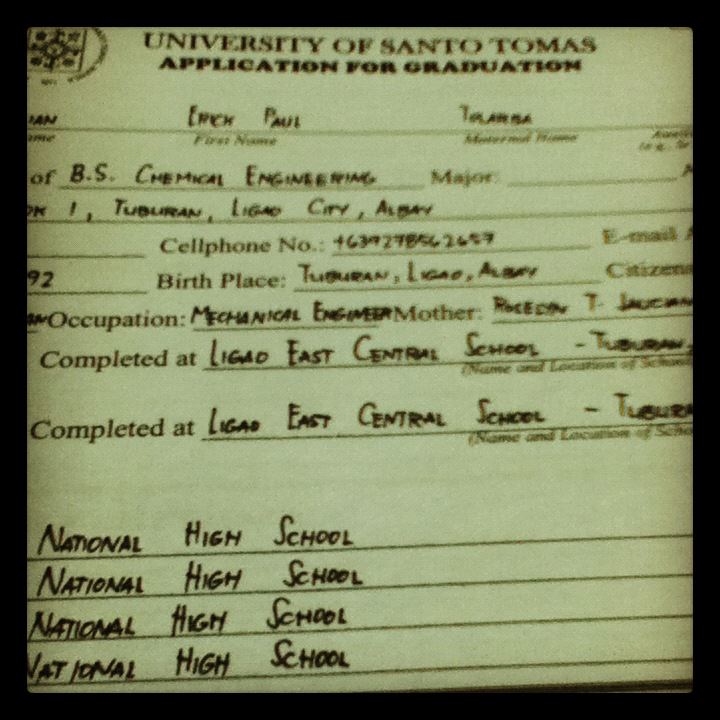 UNIVERSITY OF SANTO TOMAS
APPLICATION FOR GRADUATION
ERICH PAUL
First Name Maternal Name
of B.S. CHEMICAL ENGINEERING Major:
1, TUBURAN, LIGAO CITY, ALBAY
Cellphone No.: E-mail
92 Birth Place: TUBURAN, LIGAO, ALBAY Citizens
Occupation: MECHANICAL ENGINEER Mother:
Completed at LIGAO EAST CENTRAL SCHOOL - TUBURAN,
(Name and Location of School
Completed at LIGAO EAST CENTRAL SCHOOL - TUBURA
(Name and Location of Scho
NATIONAL HIGH SCHOOL
NATIONAL HIGH SCHOOL
NATIONAL HIGH SCHOOL
NATIONAL HIGH SCHOOL